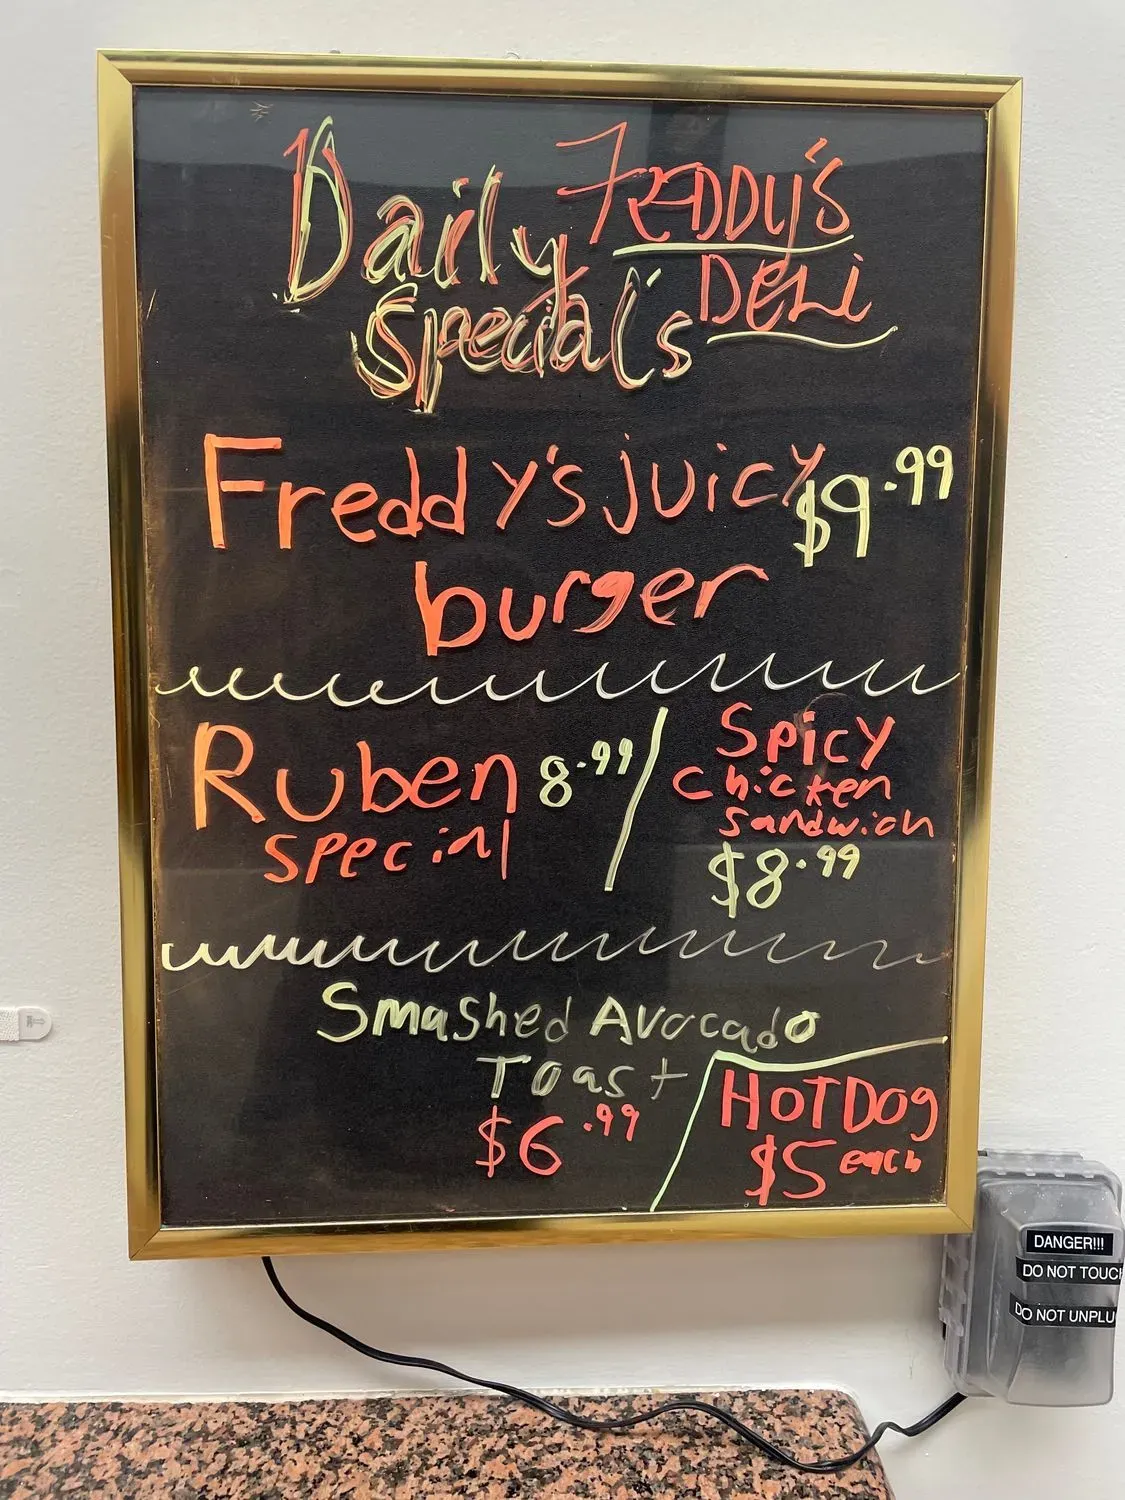 Daily
Special's
FREDDY'S
DELi
Freddy's juicy $9.99
burger
Ruben 8.99
special
Spicy
Chicken
Sandwich
$8.99
Smashed Avocado
Toast
$6.99
HOTDog
$5 each
DANGER!!!
DO NOT TOUCH
DO NOT UNPLU